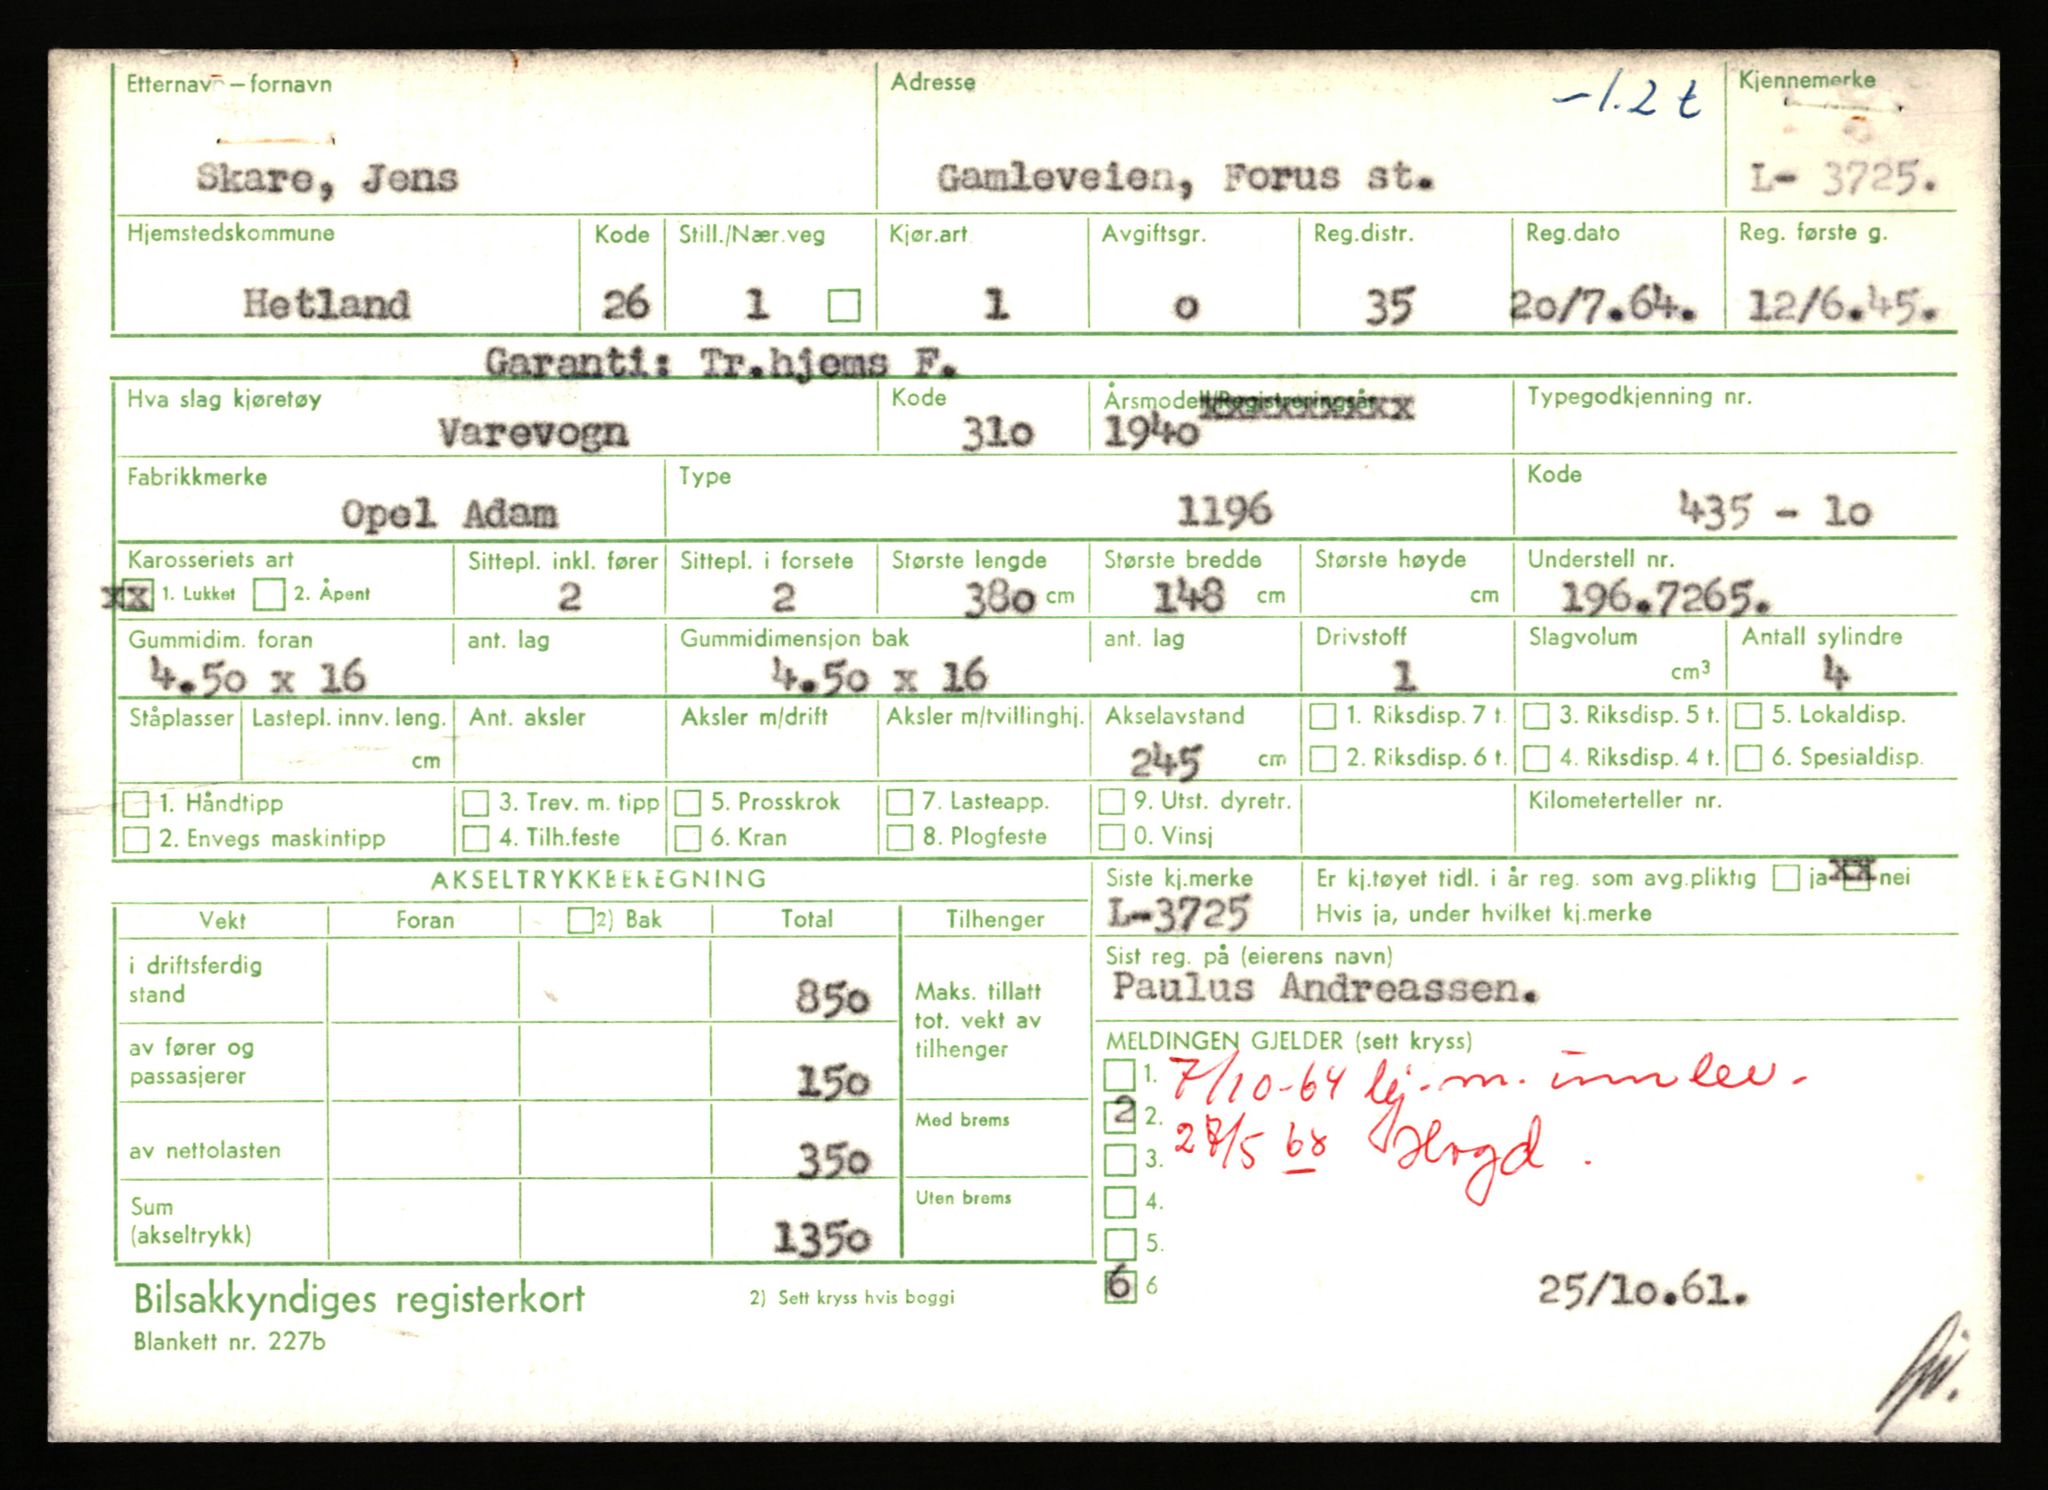 Etternavn – fornavn Adresse -1.2 t Kjennemerke
Skare, Jens Gamleveien, Forus st. L- 3725.
Hjemstedskommune Kode Still./Nær.veg Kjør.art Avgiftsgr. Reg.distr. Reg.dato Reg. første g.
Hetland 26 1 1 o 35 20/7.64. 12/6.45.
Garanti: Tr.hjems F.
Hva slag kjøretøy Kode Årsmodell/Registreringsår Typegodkjenning nr.
Varevogn 310 1940
Fabrikkmerke Type Kode
Opel Adam 1196 435 - 10
Karosseriets art Sittepl. inkl. fører Sittepl. i forsete Største lengde Største bredde Største høyde Understell nr.
xx 1. Lukket 2. Åpent 2 2 380 cm 148 cm cm 196.7265.
Gummidim. foran ant. lag Gummidimensjon bak ant. lag Drivstoff Slagvolum Antall sylindre
4.50 x 16 4.50 x 16 1 cm³ 4
Ståplasser Lastepl. innv. leng. Ant. aksler Aksler m/drift Aksler m/tvillinghj. Akselavstand 1. Riksdisp. 7 t. 3. Riksdisp. 5 t. 5. Lokaldisp.
cm 245 cm 2. Riksdisp. 6 t. 4. Riksdisp. 4 t. 6. Spesialdisp.
1. Håndtipp 3. Trev. m. tipp 5. Prosskrok 7. Lasteapp. 9. Utst. dyretr. Kilometerteller nr.
2. Envegs maskintipp 4. Tilh.feste 6. Kran 8. Plogfeste 0. Vinsj
AKSELTRYKKBEREGNING Siste kj.merke Er kj.tøyet tidl. i år reg. som avg.pliktig ja xx nei
Vekt Foran 2) Bak Total Tilhenger L-3725 Hvis ja, under hvilket kj.merke
i driftsferdig stand 850 Maks. tillatt tot. vekt av tilhenger Sist reg. på (eierens navn)
Paulus Andreassen.
av fører og passasjerer 150 MELDINGEN GJELDER (sett kryss)
1. 7/10-64 kj.m. innlev.
Med brems 2 2.
av nettolasten 350 3. 27/5 68 Hogd.
Uten brems 4.
Sum (akseltrykk) 1350 5.
Bilsakkyndiges registerkort 2) Sett kryss hvis boggi 6 6 25/10.61.
Blankett nr. 227b